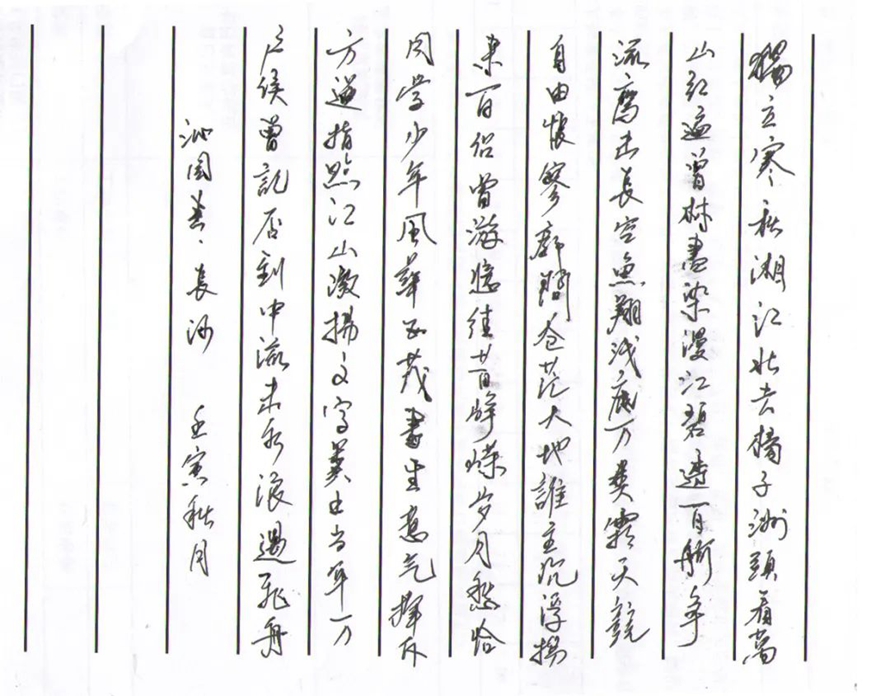 獨立寒秋湘江北去橘子洲頭看萬
山红遍曾林盡染漫江碧透百舸争
流鹰击長空魚翔浅底万类霜天競
自由悵寥廓問苍茫大地誰主沉浮携
来百侣曾游憶往昔峥嵘岁月愁恰
同学少年風華正茂書生意气揮斥
方遒指點江山激揚文字粪土当年万
户侯曾記否到中流击水浪遏飛舟
沁园春·長沙 壬寅秋月